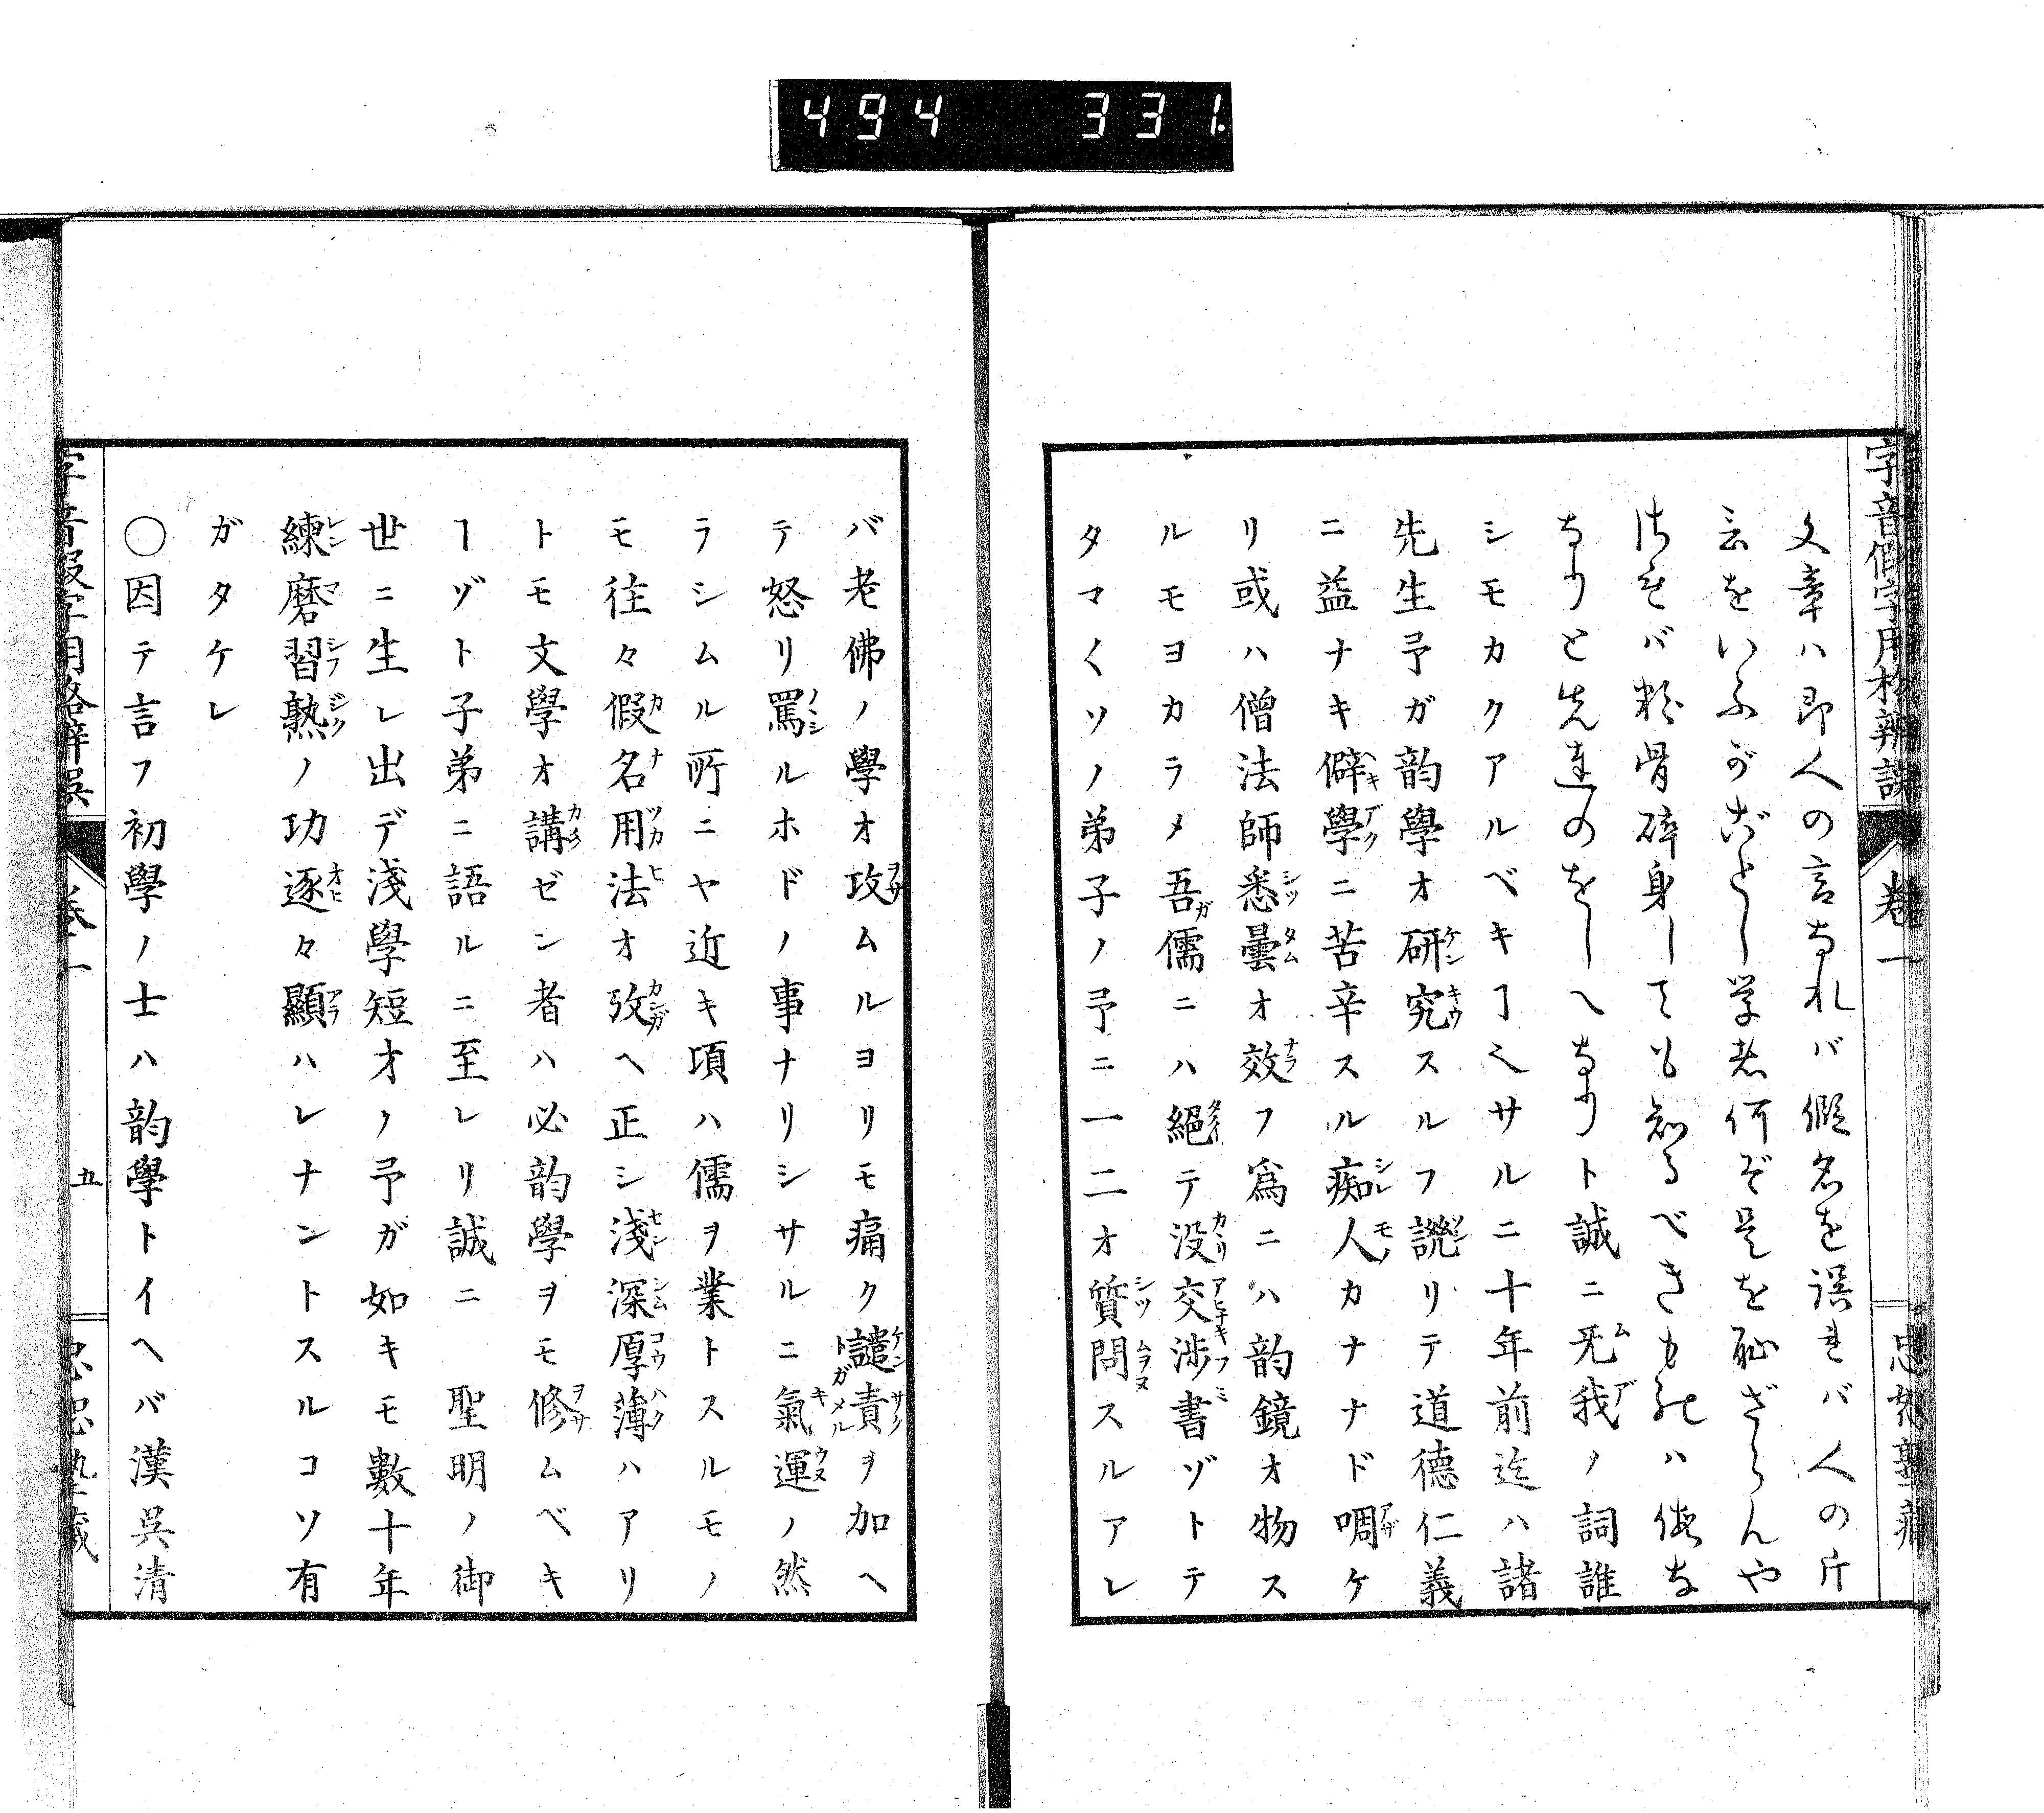 494 331.
字音假字用格辨誤 卷一 忠恕塾藏
文章ハ即人の言なれバ假名を誤れバ人の片
言をいふがごとし学者何ぞ是を恥ざらんや
されバ粉骨碎身しても知るべきものハ假な
なりと先達のをしへなりト誠ニ旡我ノ詞誰
シモカクアルベキヿヘサルニ十年前迄ハ諸
先生予ガ韵學オ研究スルフ譭リテ道德仁義
ニ益ナキ僻學ニ苦辛スル痴人カナナド嘲ケ
リ或ハ僧法師悉曇オ效フ爲ニハ韵鏡オ物ス
ルモヨカラメ吾儒ニハ絕テ没交涉書ゾトテ
タマ〱ソノ弟子ノ予ニ一二オ質問スルアレ
バ老佛ノ學オ攻ムルヨリモ痛ク譴責ヲ加ヘ
テ怒リ罵ルホドノ事ナリシサルニ氣運ノ然
ラシムル所ニヤ近キ頃ハ儒ヲ業トスルモノ
モ往々假名用法オ攷ヘ正シ淺深厚薄ハアリ
トモ文學オ講ゼン者ハ必韵學ヲモ修ムベキ
ヿゾト子弟ニ語ルニ至レリ誠ニ 聖明ノ御
世ニ生レ出デ淺學短才ノ予ガ如キモ數十年
練磨習熟ノ功逐々顯ハレナントスルコソ有
ガタケレ
○因テ言フ初學ノ士ハ韵學トイヘバ漢吳清
字音假字用格辨誤 卷一 五 忠恕塾藏